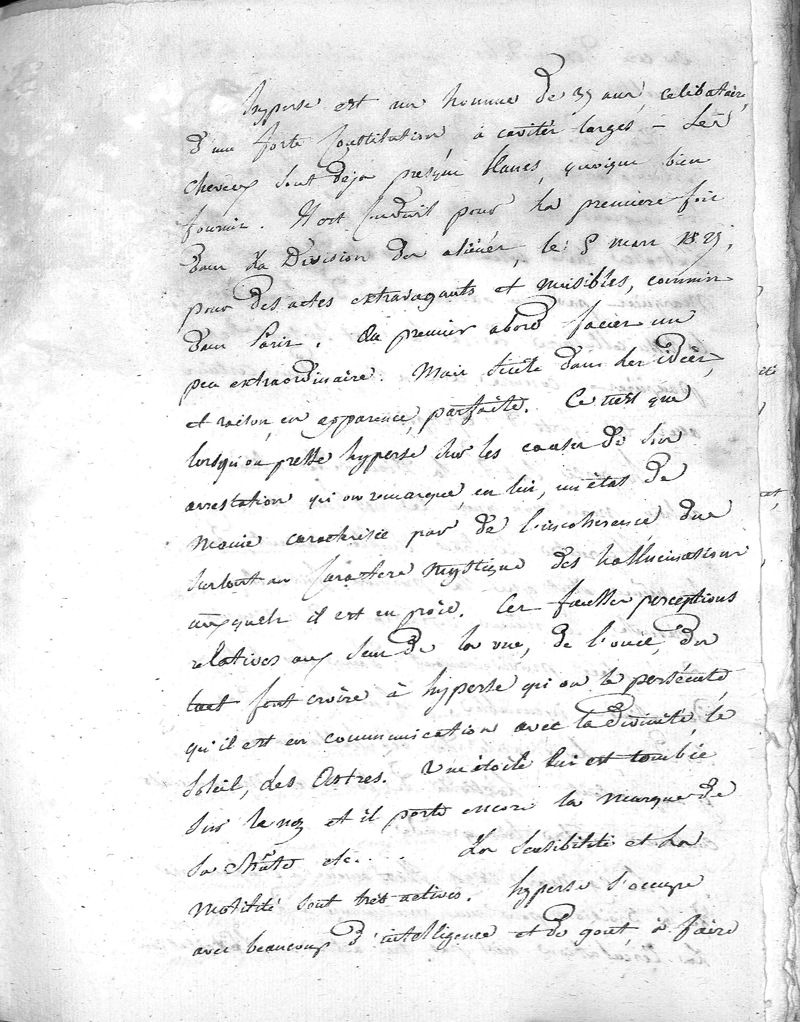 hyperse est un homme de 39 ans, celibataire,
d'une forte constitution, à cavités larges - Ses
cheveux sont deja presque blancs, quoique bien
fournis. Il est conduit pour la premiere fois
dans la Division des aliénés, le 5 mars
pour des actes extravagants et nuisibles, commis
dans Paris. au premier abord facies un
peu extraordinaire. Mais suite dans les idées,
et raison, en apparence, parfaite. Ce n'est que
lorsqu'on presse hyperse sur les causes de son
arrestation qu'on remarque, en lui, un état de
manie caracterisée par de l'incoherence due
surtout au caractere mystique des hallucinations
auxquels il est en proie. Ces fausses perceptions
relatives aux sens de la vue, de l'ouie, du
tact font croire à hyperse qu'on le persécute
qu'il est en communication avec la divinité, le
soleil, des Astres. Une étoile lui est tombée
sur le nez et il porte encore la marque de
sa chute etc. . . La sensibilité et la
motilité sont très actives. hyperse s'occupe
avec beaucoup d'intelligence et de gout, à faire